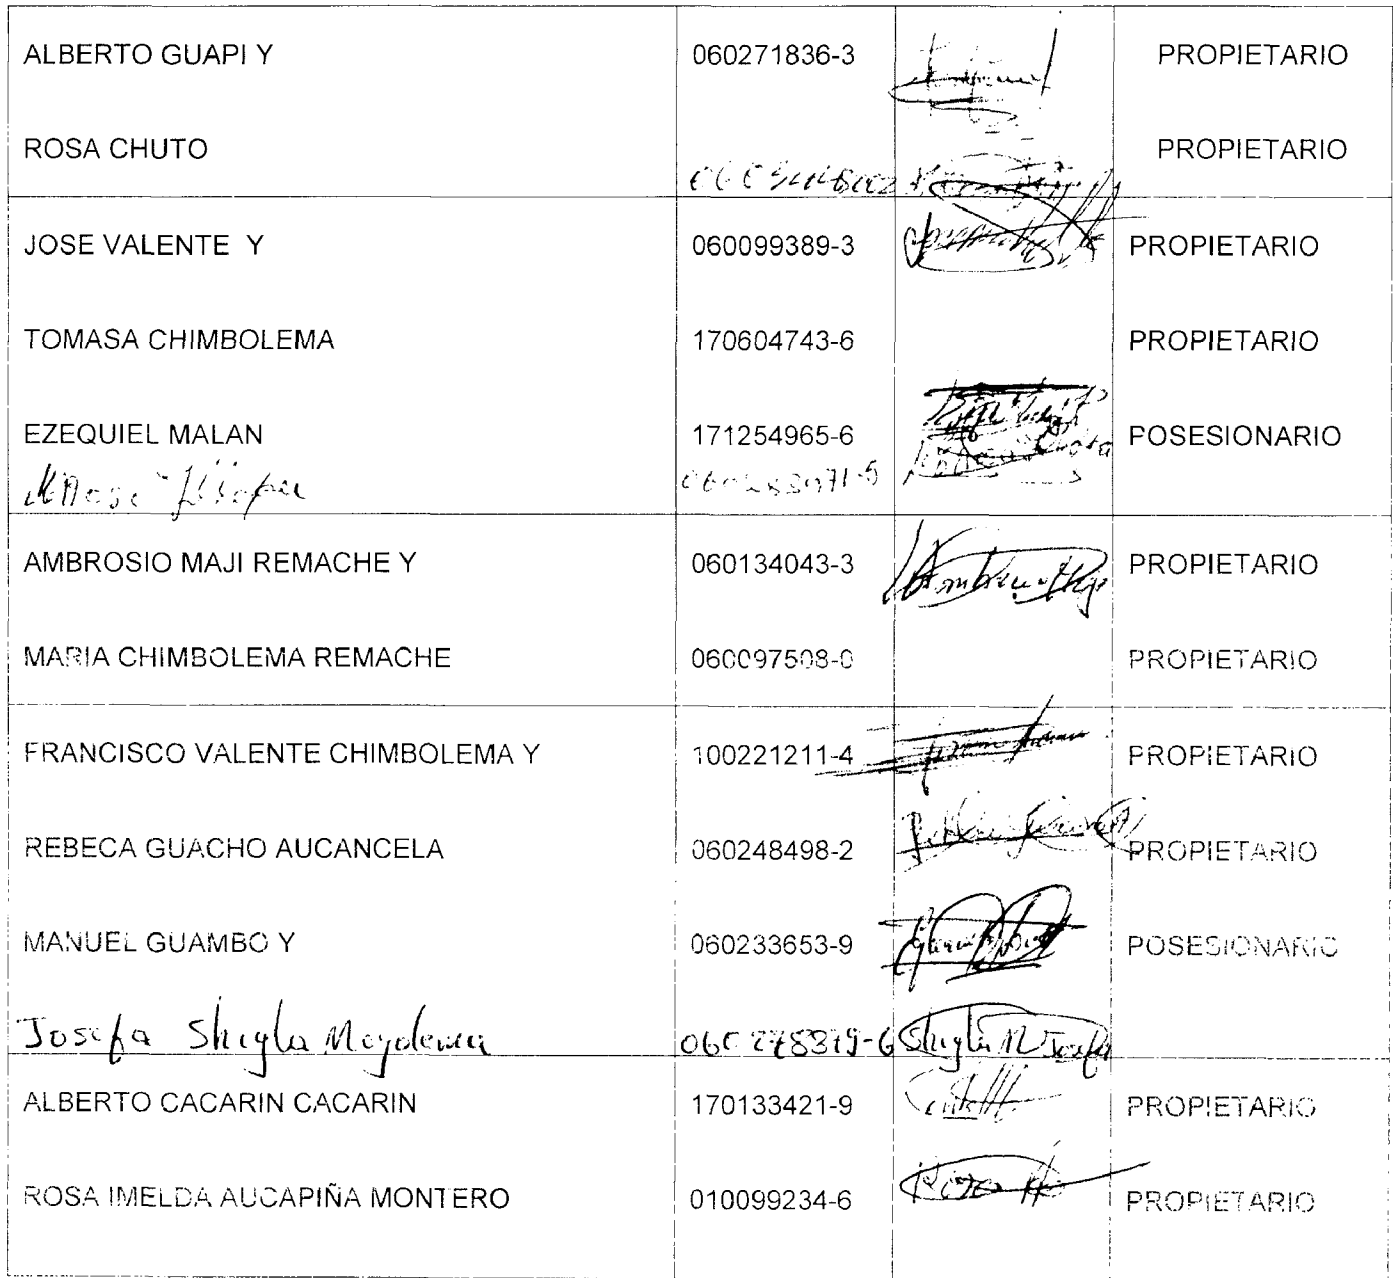 ALBERTO GUAPI Y 060271836-3 PROPIETARIO
ROSA CHUTO PROPIETARIO
JOSE VALENTE Y 060099389-3 PROPIETARIO
TOMASA CHIMBOLEMA 170604743-6 PROPIETARIO
EZEQUIEL MALAN 171254965-6 POSESIONARIO
AMBROSIO MAJI REMACHE Y 060134043-3 PROPIETARIO
MARIA CHIMBOLEMA REMACHE 060097508-0 PROPIETARIO
FRANCISCO VALENTE CHIMBOLEMA Y 100221211-4 PROPIETARIO
REBECA GUACHO AUCANCELA 060248498-2 PROPIETARIO
MANUEL GUAMBO Y 060233653-9 POSESIONARIO
Josefa Shigla Shigla M Josefa
ALBERTO CACARIN CACARIN 170133421-9 PROPIETARIO
ROSA IMELDA AUCAPIÑA MONTERO 010099234-6 Rosa PROPIETARIO